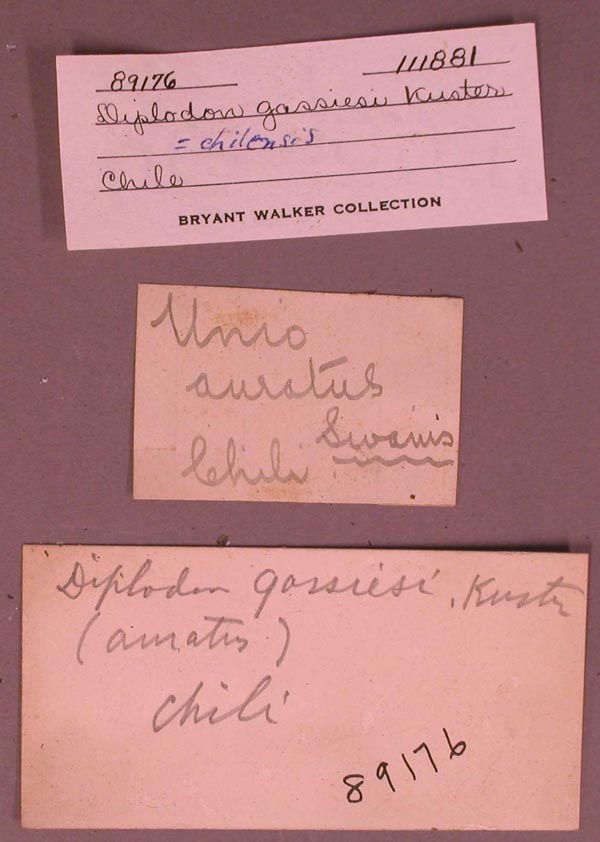 89176 111881
Diplodon gassiesi Kuster
= chilensis
Chile
BRYANT WALKER COLLECTION
Unio
auratus
Swains
Chili
Diplodon gassiesi. Kuster
(auratus)
Chili
89176